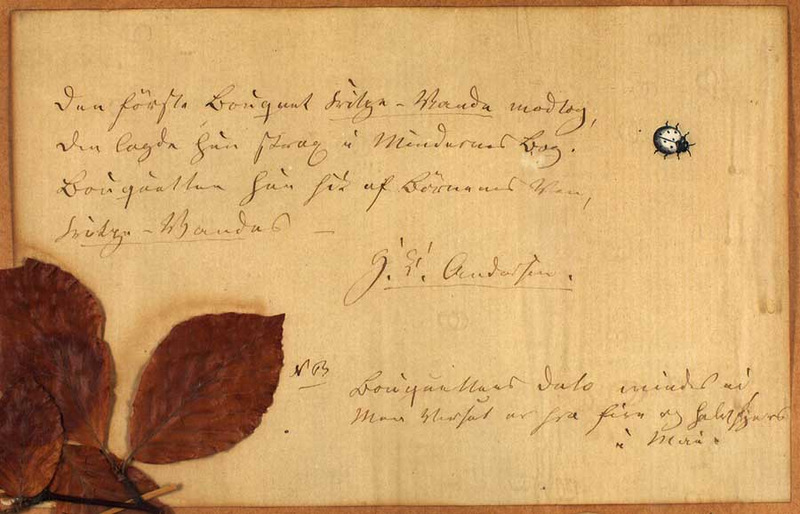 Den første Bouquet Fritze-Wanda modtog,
den lagde hun strax i Mindernes Bog.
Bouquetten hun fik af Börnenes Ven,
Fritze-Wandas —
H. C. Andersen.
NB
Bouquettens Dato mindes ei
Men Verset er fra fire og halvfjers
i Mai.